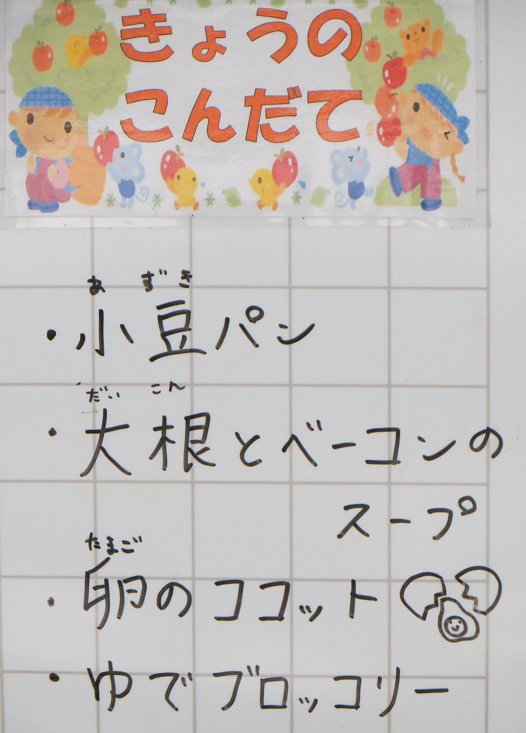 きょうの
こんだて
あずき
・小豆パン
だいこん
・大根とベーコンの
スープ
たまご
・卵のココット
・ゆでブロッコリー